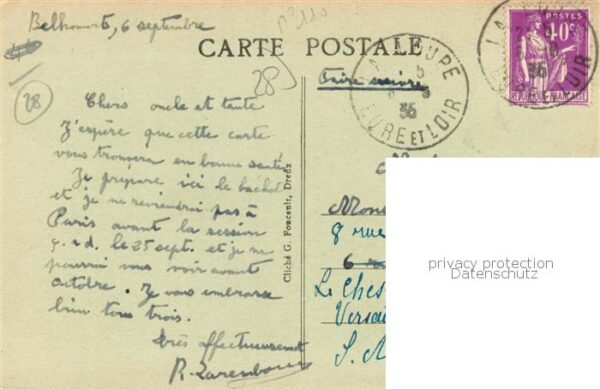 Belhomert, 6 septembre
CARTE POSTALE
Faire suivre
28
28
LA LOUPE
EURE ET LOIR
35
POSTES
40c
35
Chers oncle et tante
J'espère que cette carte
vous trouvera en bonne santé.
Je prépare ici le bachot
et je ne reviendrai pas à
Paris avant la session
c. à d. le 25 sept. et je ne
pourrai vous voir avant
octobre. Je vous embrasse
bien tous trois.
Très affectueusement
R.
Cliché G. Foucault, Dreux
8 rue
6
Le Ches
Versai
S.
privacy protection
Datenschutz